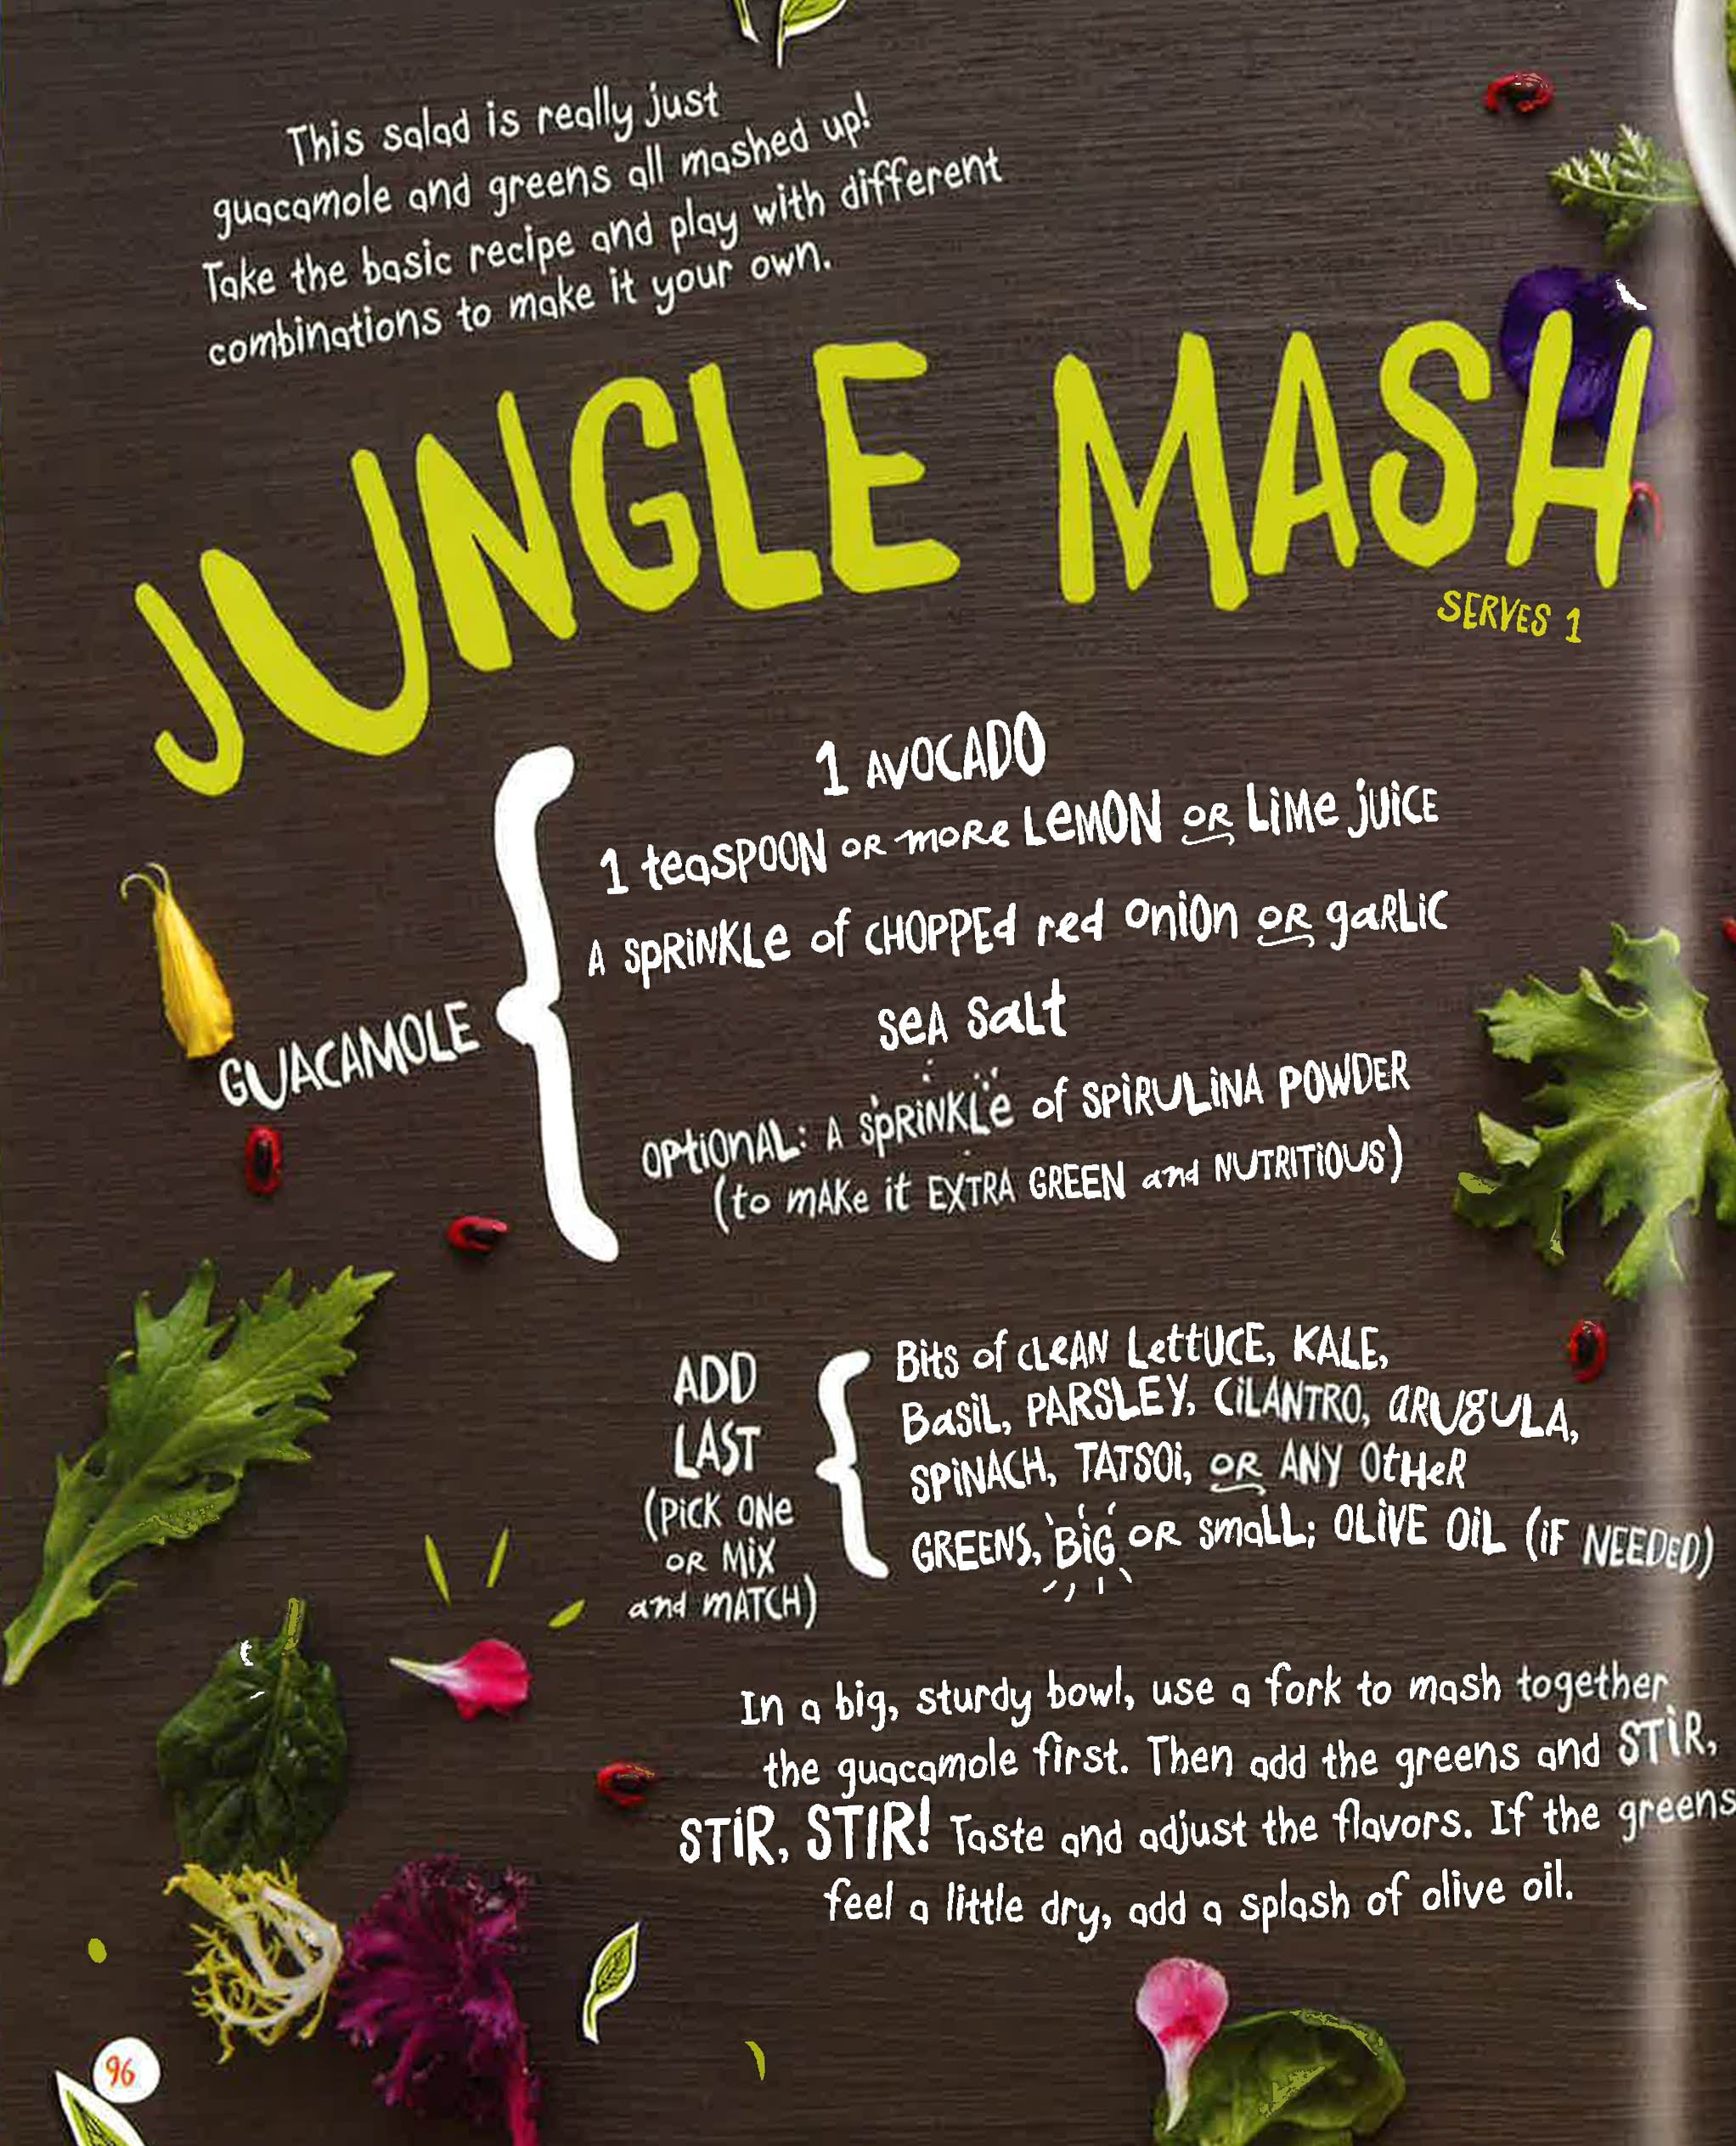 This salad is really just
guacamole and greens all mashed up!
Take the basic recipe and play with different
combinations to make it your own.
JUNGLE MASH
SERVES 1
GUACAMOLE
1 AVOCADO
1 teaSPOON OR moRe LeMON OR LiMe jUiCE
A SpRiNKLe of CHOPPEd red oniOn OR gaRLiC
SeA SaLt
OptiOnAL: A SpRiNKLe of SPiRULiNA POWDER
(to mAKe it EXTRA GREEN and NUTRiTiOUS)
ADD
LAST
(PiCK ONe
OR MiX
and mATCH)
Bits of cLeAN LettUCE, KALE,
BasiL, PARSLEY, CiLANTRO, aRUgULA,
SPiNACH, TATSOi, OR ANY OtHeR
GREENS, BiG OR smaLL; OLiVE OiL (iF NEEDED)
In a big, sturdy bowl, use a fork to mash together
the guacamole first. Then add the greens and STiR,
STiR, STIR! Taste and adjust the flavors. If the greens
feel a little dry, add a splash of olive oil.
96